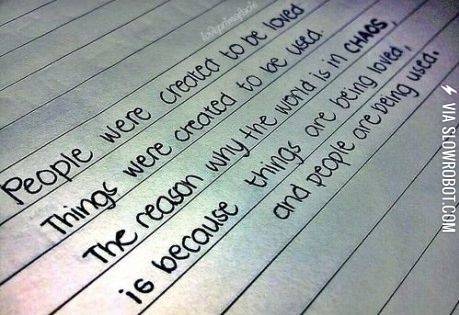 People were created to be loved
Things were created to be used.
The reason why the world is in CHAOS,
is because things are being loved,
and people are being used.
VIA SLOWROBOT.COM